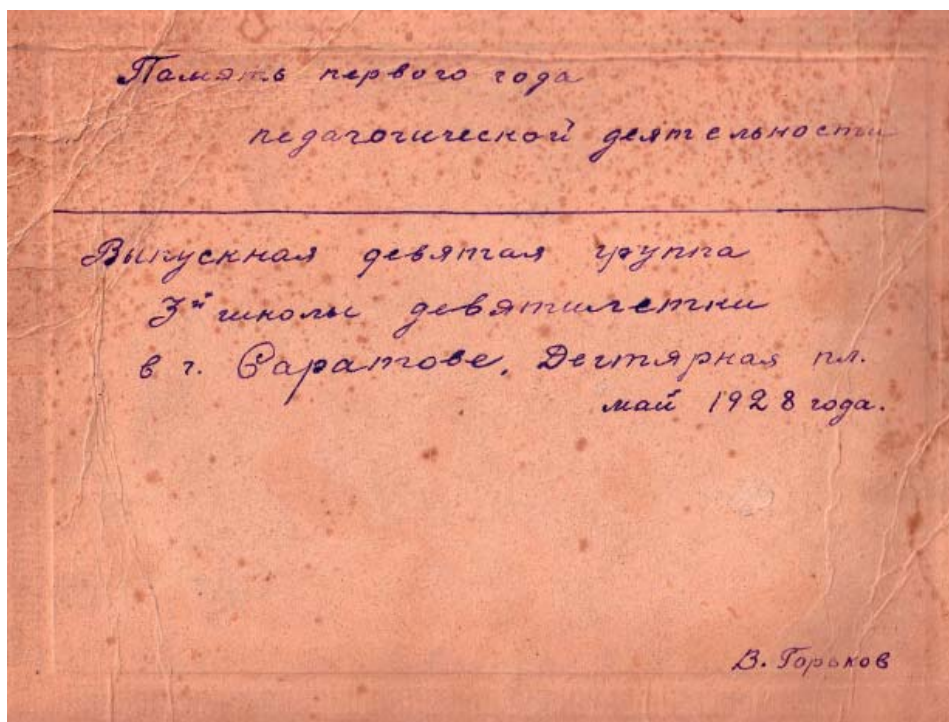 Память первого года
педагогической деятельности
Выпускная девятая группа
3й школы девятилетки
в г. Саратове, Дегтярная пл.
май 1928 года.
В. Горьков